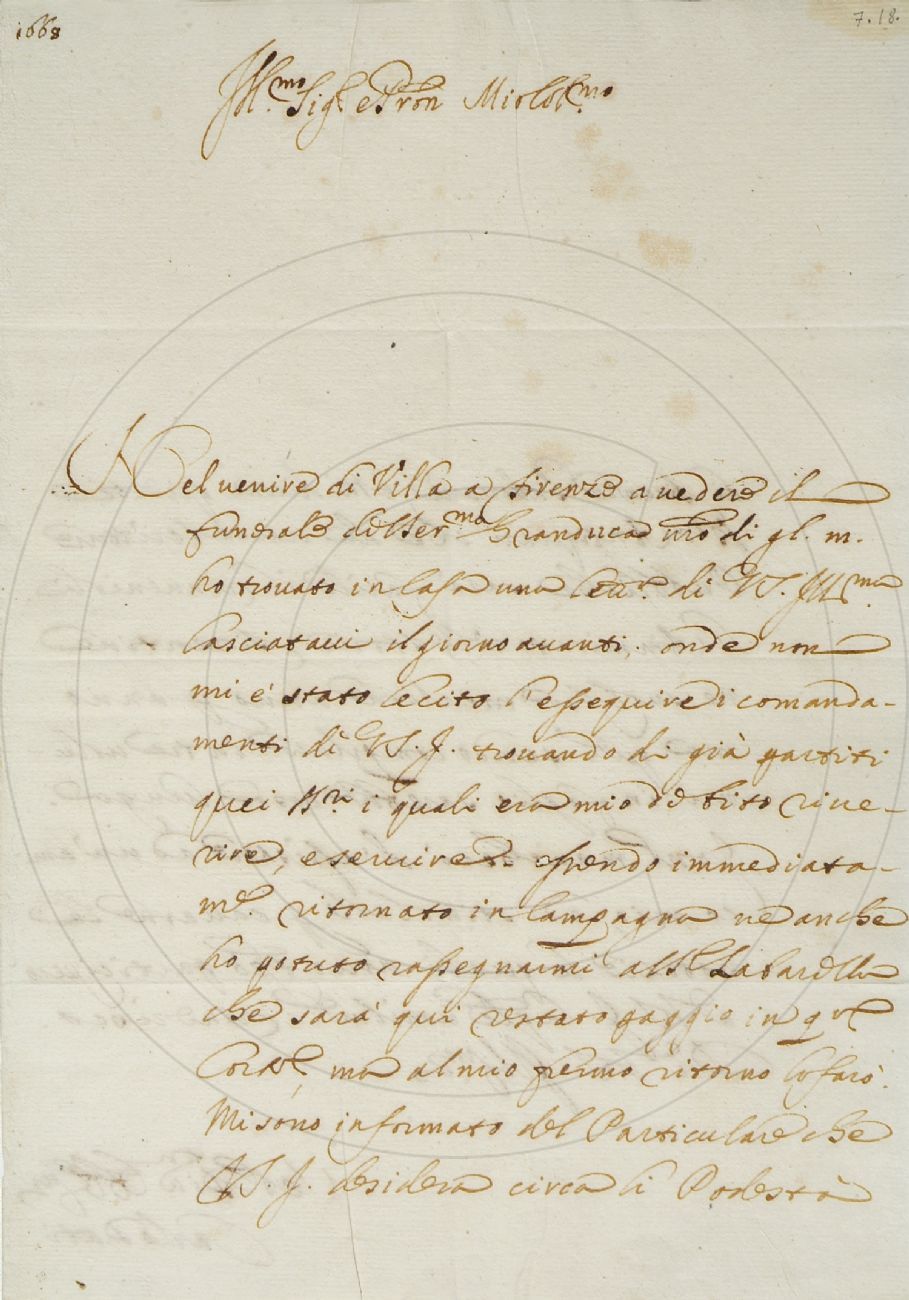 1668
7.18.
Ill.mo Sig.r e Pron Mio
Nel uenire di Villa a Firenze a uedere il
funerale del Ser.mo Granduca nro di gl. m.
ho trouato in Casa una lett.a di VS. Ill.ma
lasciataui il giorno auanti, onde non
mi è stato lecito l'esseguire i comanda-
menti di VS. I. trouando di già partiti
quei SS.ri i quali era mio debito riue-
rire, e seruire essendo immediata-
m.e ritornato in Campagna ne anche
ho potuto rassegnarmi al S.r Zabarella
che sarà qui restato paggio in
ma al mio fermo ritorno lo farò.
Mi sono informato del Particulare che
VS. I. desidera circa li Podestà